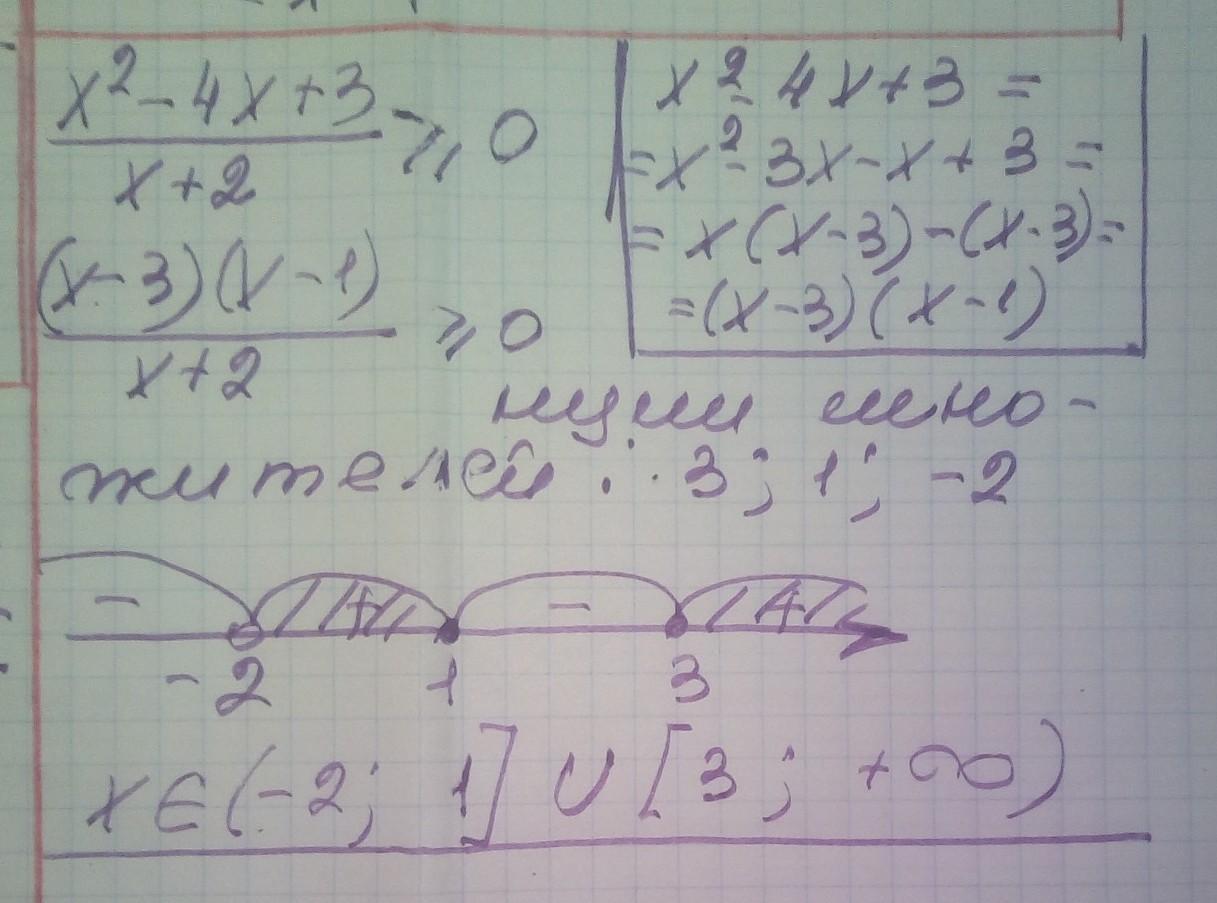 x² - 4x + 3
x + 2
⩾ 0
(x - 3)(x - 1)
x + 2
⩾ 0
x² - 4x + 3 =
= x² - 3x - x + 3 =
= x(x - 3) - (x - 3) =
= (x - 3)(x - 1)
нули мно-
жителей: 3; 1; -2
- + - +
-2 1 3
x ∈ (-2; 1] ∪ [3; +∞)